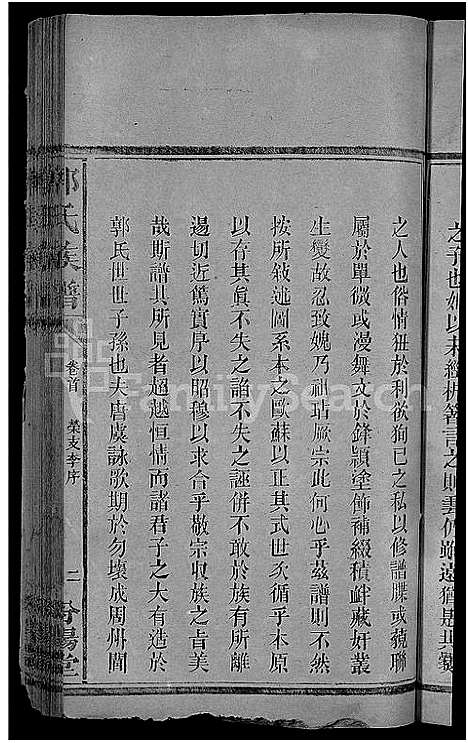 之人也俗情狃於利欲狥已之私以修譜牒或藐聯
屬於單微或漫舞文於鋒頴塗飾補綴積衅藏奸叢
生變故忍致媿乃祖玷厥宗此何心乎茲譜則不然
按所敍述圖系本之歐蘇以正其式世次循乎本原
以存其眞不失之諂不失之誣併不敢於族有所離
逷切近篤實厚以昭穆以求合乎敬宗收族之旨美
哉斯譜其所見者超越恒情而諸君子之大有造於
郭氏世世子孫也夫唐虞詠歌期於勿壞成周州閭
郭氏族譜
卷首
榮支李序
二
汾陽堂
FamilySearch